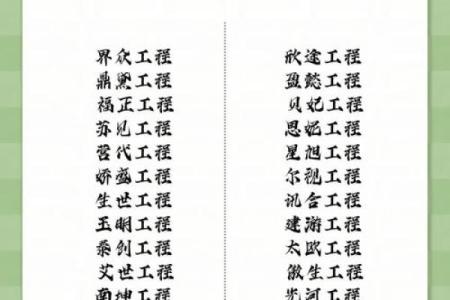 界众工程
鼎黛工程
福正工程
苏见工程
营代工程
娇盛工程
生世工程
玉明工程
泰创工程
艾世工程
南坤工程
欣途工程
盈懿工程
贝妃工程
思妮工程
星旭工程
尔视工程
讯合工程
建游工程
太欧工程
傲生工程
先河工程